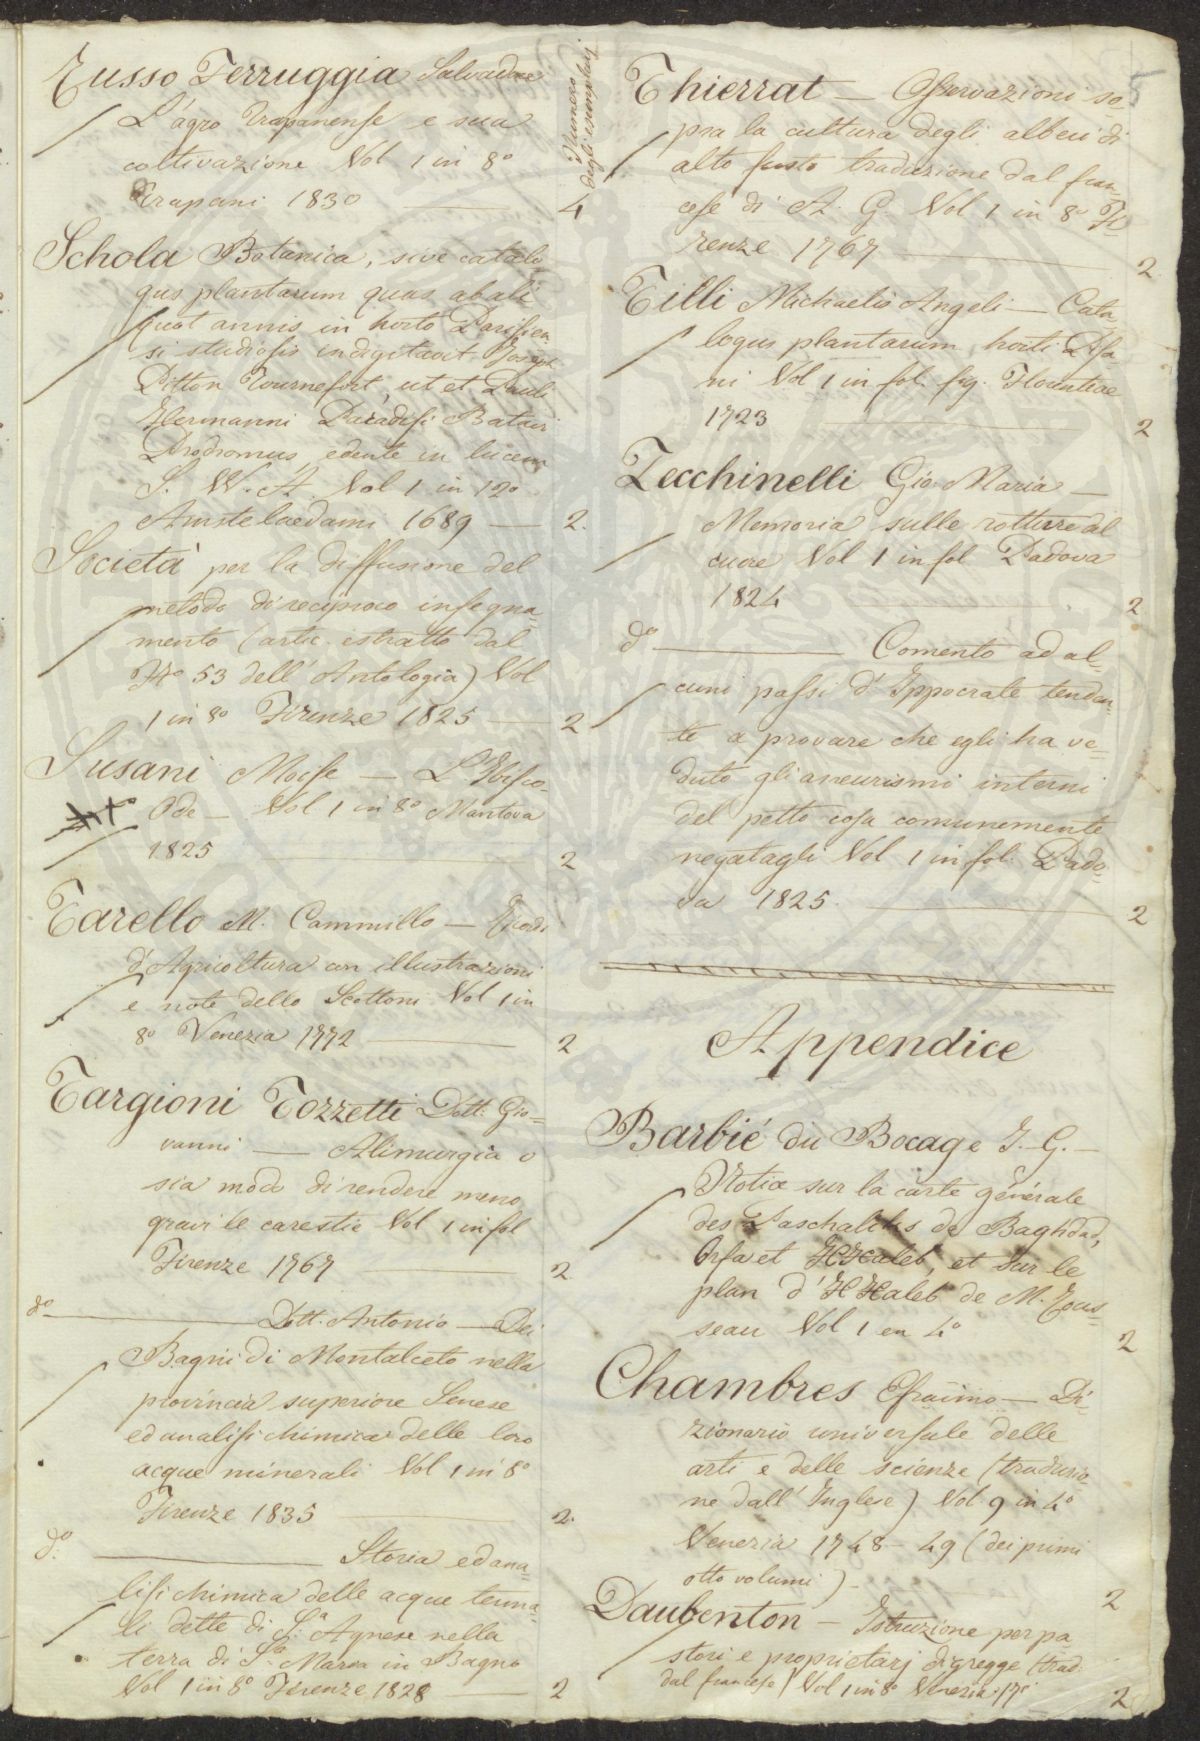 Russo Ferruggia Salvadore
L'agro Trapanense e sua
coltivazione Vol 1 in 8º
Trapani 1830 —
Numero
degli esemplari
4
Schola Botanica, sive catalo-
gus plantarum quas ab ali
quot annis in horto Parisien
si studiosis indigitavit Joseph
Pitton Tournefort, ut et Pauli
Hermanni Paradisi Batavi
Prodromus, edente in lucem
S. W. A. Vol 1 in 12º
Amstelaedami 1689 — 2.
Società per la diffusione del
metodo di reciproco insegna-
mento (artic. estratto dal
Nº 53 dell' Antologia) Vol
1 in 8º Firenze 1825 — 2
Susani Moise —
Ode — Vol 1 in 8º Mantova
1825 — 2
Tarello M. Cammillo — Ricordi
d'Agricoltura con illustrazioni
e note dello Scottoni Vol 1 in
8º Venezia 1772 — 2
Targioni Tozzetti Dott: Gio-
vanni — Alimurgia o
sia modo di rendere meno
gravi le carestie Vol 1 in fol
Firenze 1767 — 2
dº — Dott: Antonio — Dei
Bagni di Montalceto nella
provincia superiore Senese
ed analisi chimica delle loro
acque minerali Vol 1 in 8º
Firenze 1835 — 2.
dº: — Storia ed ana-
lisi chimica delle acque terma-
li dette di S.ª Agnese nella
terra di S.ª Maria in Bagno
Vol 1 in 8º Firenze 1828 — 2
5
Thierrat — Osservazioni so-
pra la cultura degli alberi di
alto fusto traduzione dal fran-
cese di A. G. Vol 1 in 8º Fi-
renze 1767 — 2
Tilli Michaelis Angeli — Cata-
logus plantarum horti Pisa-
ni Vol 1 in fol. fig. Florentiae
1723 — 2
Zecchinelli Gio Maria —
Memoria sulle rotture del
cuore Vol 1 in fol Padova
1824 2
dº — Comento ad al-
cuni passi d'Ippocrate tenden-
te a provare che egli ha ve-
duto gli aneurismi interni
del petto cosa comunemente
negatagli Vol 1 in fol. Pado-
va 1825. — 2
Appendice
Barbié du Bocage J. G. —
Notice sur la carte générale
des Paschaliks de Baghdad,
Orfa et HHaleb, et sur le
plan d'HHaleb de M. Rous-
seau Vol 1 en 4º 2
Chambres Efraimo — Di-
zionario universale delle
arti e delle scienze (traduzio-
ne dall' Inglese) Vol. 9 in 4º
Venezia 1748 - 49 (dei primi
otto volumi) — 2
Daubenton — Istruzione per pa-
stori e proprietarj di gregge (trad:
dal francese) Vol 1 in 8º Venezia 2